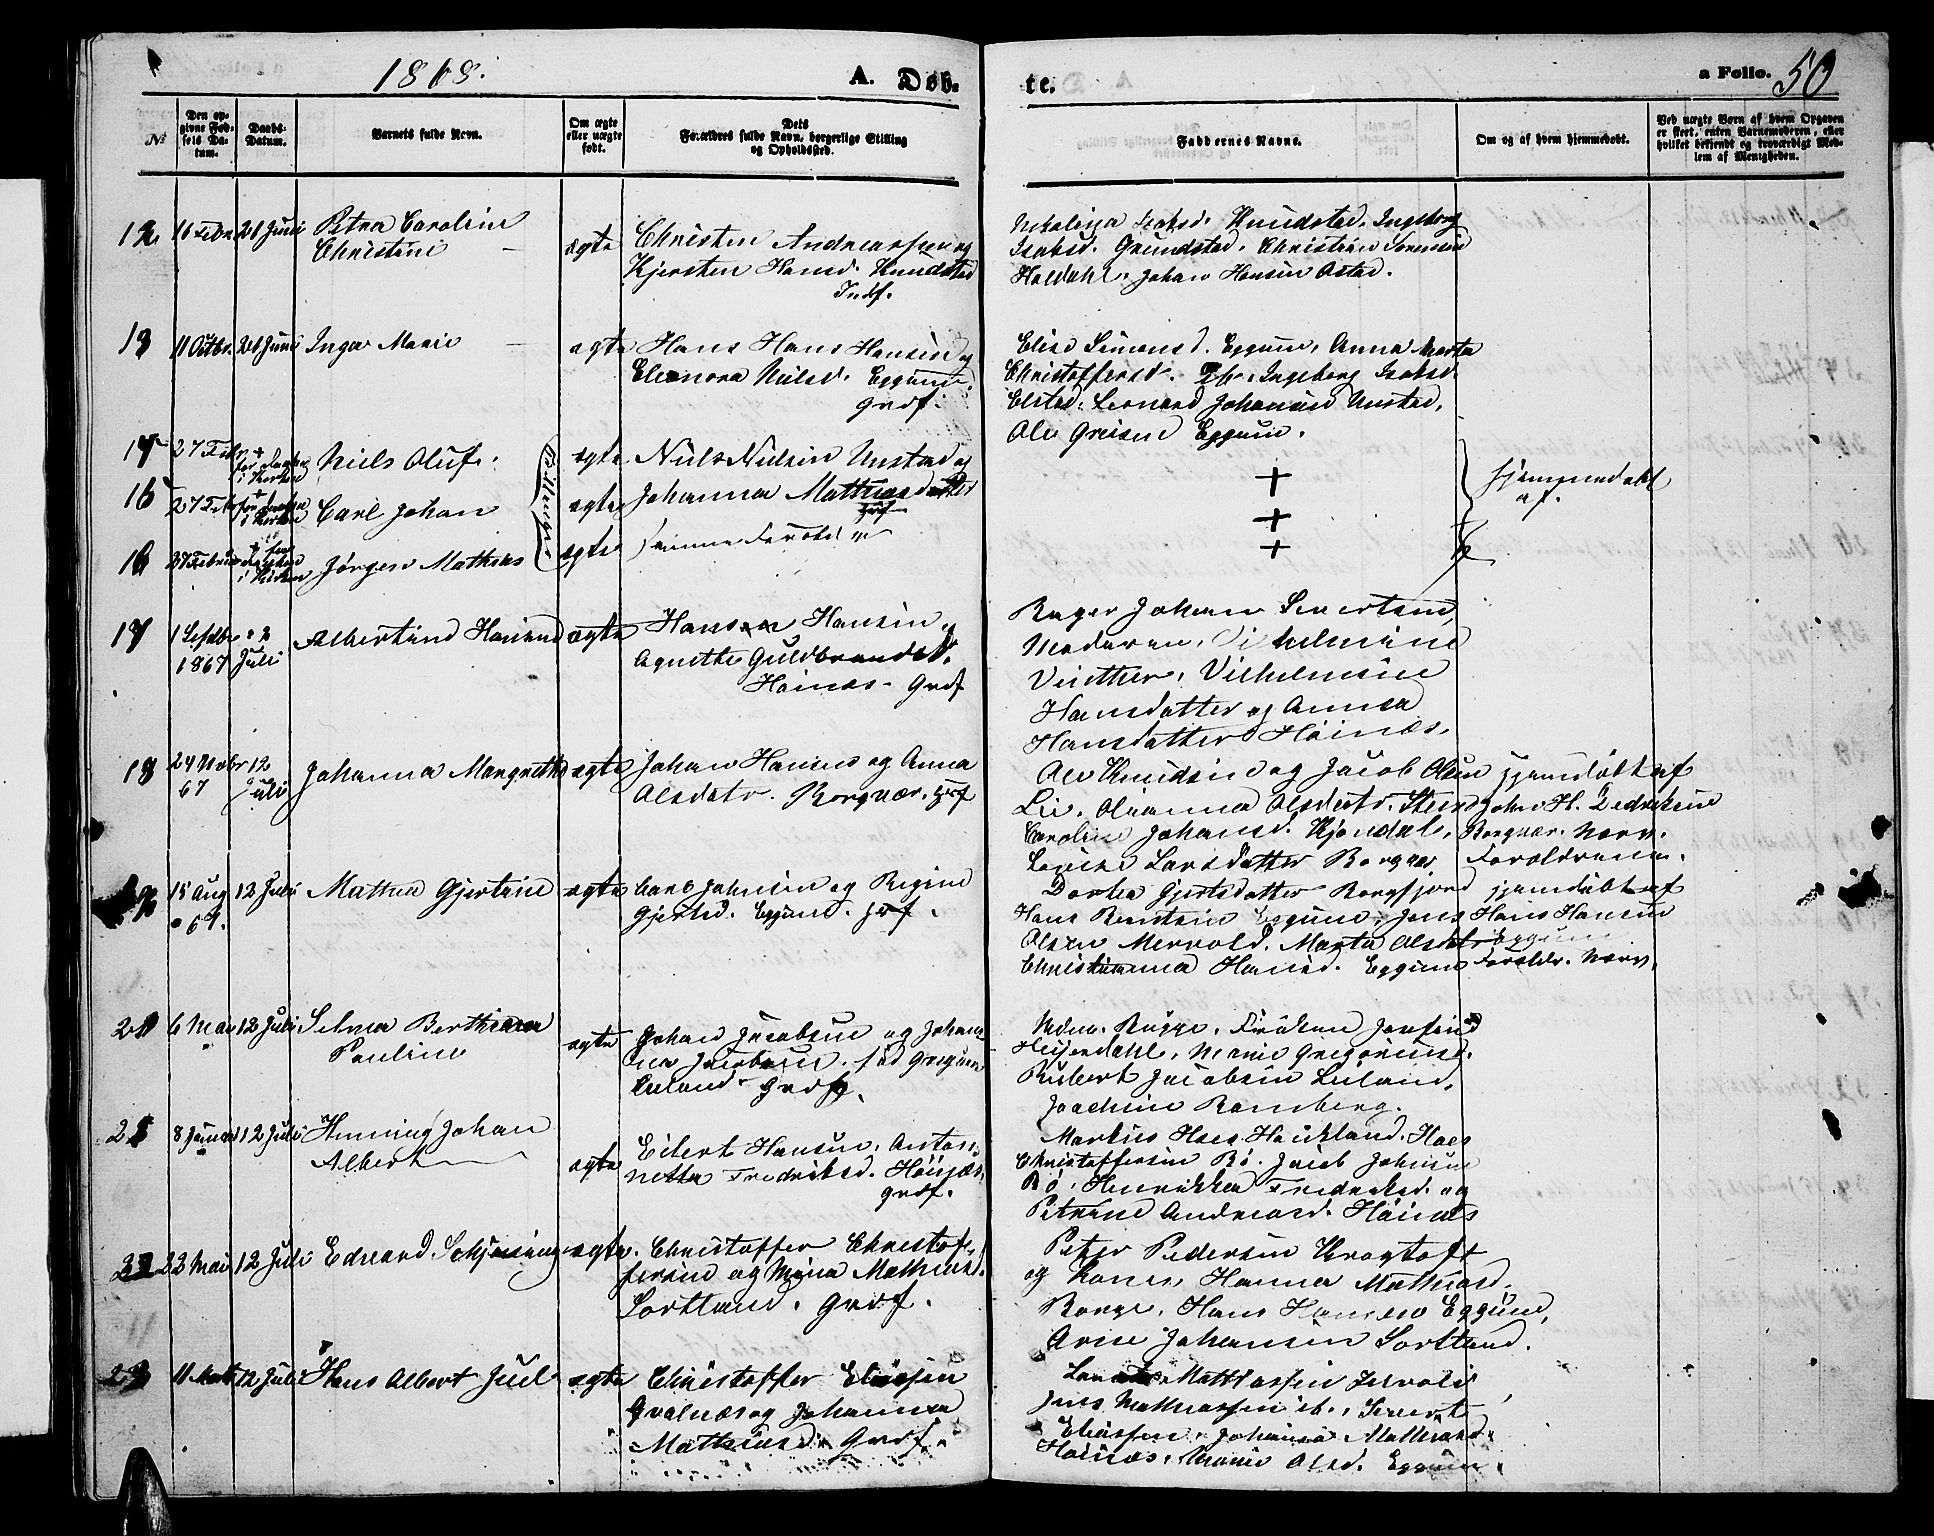 1868.
A. Døb-
te.
a Folio. 50
№
Den opgivne Fødsels Datum.
Daabs-Datum.
Barnets fulde Navn.
Om ægte eller uægte født.
Dets Forældres fulde Navn, borgerlige Stilling og Opholdssted.
Faddernes Navne.
Om og af hvem hjemmedøbt.
Ved uægte Børn af hvem Opgaven er skeet, enten Barnemoderen, eller hvilket bekjendt og troværdigt Medlem af Menigheden.
12 16 Febr. 21 Juni Petra Caroline
Christine
ægte
Christen Andreassen og
Kjersten Hansd. Knudstad
Indf.
Isaksd. Knudstad. Ingeborg
Isaksd. Grundstad. Christian Sørensen
Holdahl. Johan Hansen Østad.
13 11 Octbr. 21 Juni Inga Marie
ægte
Hans Hans Hansen og
Eleonora Nilsd. Eggum.
Grdf.
Elise Simonsd. Eggum, Anna Marta
Christoffersd. Ib. Ingeborg Isaksd.
Elstad. Leonard Johansen Unstad,
Ole Greisen Eggum.
14 27 Febr. + før daaben i Kirken Niels Oluf.
ægte
Niels Nielsen Unstad og
15 27 Febr. + før daaben i Kirken Carl Johan
ægte
Johanna Mathiasdatter
Grdf.
16 27 Febr. + før daaben i Kirken Jørgen Mathias
ægte
samme Forældre
Trillinger
+
+
+
hjemmedøbt
af
17 1 Septbr 1867 2 Juli Albertine Hansine
ægte
Hans Hansen og
Agnethe Guldbrandsd.
Høinæs. Grdf
Johan Sivertsen,
Moderen, Vilhelmine
Vinther, Vilhelmine
Hansdatter og Anna
Hansdatter Høinæs.
18 24 Novbr 67 12 Juli Johanna Margrethe
ægte
Johan Hansen og Anna
Olsdatr. Borgvær. Grdf
Ole Knudsen og Jacob Olsen
Lie. Olianna Olsdatr. Steen
Caroline Johansd. Kjøndal,
Larsdatter Borgvær
hjemdøbt af
John H. Didriksen
Borgvær. Nærv.
Forældrene.
19 15 Aug 67. 12 Juli Mathea Gjertine
ægte
Carl Johnsen og Regine
Gjertsd. Eggum. Grdf.
Dorthea Gjertsdatter Borgfjord
Hans Berntsen Eggum, Jens
Olsen Mervold. Marta Olsdatr
Christianna Hansd. Eggum
hjemdøbt af
Hans Hansen
Eggum
Forældr. Nærv.
20 6 Mai 12 Juli Selma Berthea
Pauline
ægte
Johan Jacobsen og Johan-
na Jacobsen. fød Gregusen
Leland Grdf.
Mdm. Bugge, Frøken Josefine
Heijerdahl, Marie Gregoriusd.
Robert Jacobsen Leland,
Joachim Ramberg.
21 8 Januar 12 Juli Henning Johan
Albert
ægte
Eilert Hansen, Anton-
netta Fredriksd. Høinæs,
Grdf.
Markus Hoes Haukland. Hoes
Christoffersen Bø. Jacob Johnsen
Bø. Henrikka Fredriksd. og
Petrine Andreasd. Høinæs
22 22 Mai 12 Juli Edvard Schjenning
ægte.
Christoffer Christof-
fersen og Mina Mathiasd.
Sortland. Grdf.
Peter Pedersen Kragtoft
og Kone, Hanna Mathiasd.
Borge, Hans Hansen Eggum,
Arne Johansen Sortland.
23 11 Marts 12 Juli Hans Albert Juel
ægte
Christoffer Eliassen
Hvalnæs og Johanna
Mathiasd. Grdf.
Mathiassen
Jens Mathiassen ib., Sivert
Eliassen, Johanna Mathiasd.
Høinæs, Marie Olsd. Eggum.